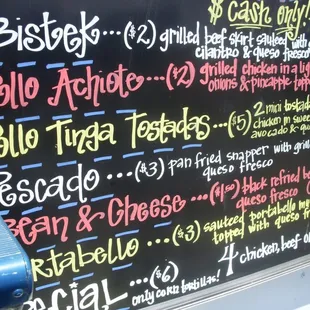 $ Cash only!!
Bistek...($2) grilled beef skirt sauteed with
cilantro & queso fresco
ollo Achiote...($2) grilled chicken in a lig
onions & pineapple topp
ollo Tinga Tostadas...($5) 2 mini tostada
chicken in sweet
avocado & que
escado...($3) pan fried snapper with grill
queso fresco
Bean & Cheese...($1.50) black refried be
queso fresco
rtabello...($3) sauteed portabella mu
topped with queso f
ecial...($6) 4 chicken, beef o
only corn tortillas!